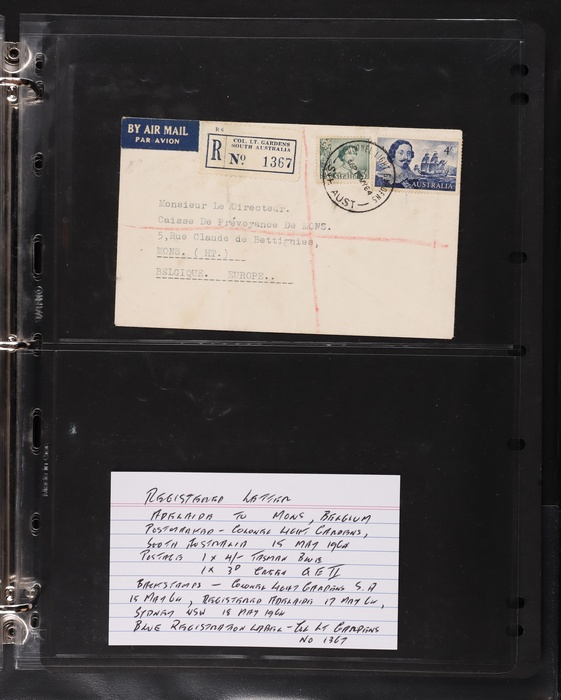 BY AIR MAIL
PAR AVION
R6
R
COL. LT. GARDENS
SOUTH AUSTRALIA
No 1367
4/-
AUSTRALIA
AUST
Monsieur Le Directeur.
Caisse De Prévoyance De MONS.
5,Rue Claude de Bettignies,
MONS. ( HT.)
BELGIQUE. EUROPE..
REGISTERED LETTER
ADELAIDE TO MONS, BELGIUM
POSTMARKED - COLONEL LIGHT GARDENS,
SOUTH AUSTRALIA 15 MAY 1964
POSTAGE 1 x 4/- TASMAN BLUE
1 x 3D GREEN Q E II
BACKSTAMPS - COLONEL LIGHT GARDENS S.A
15 MAY 64, REGISTERED ADELAIDE 17 MAY 64,
SYDNEY NSW 18 MAY 1964
BLUE REGISTRATION LABEL - COL LT GARDENS
NO 1367